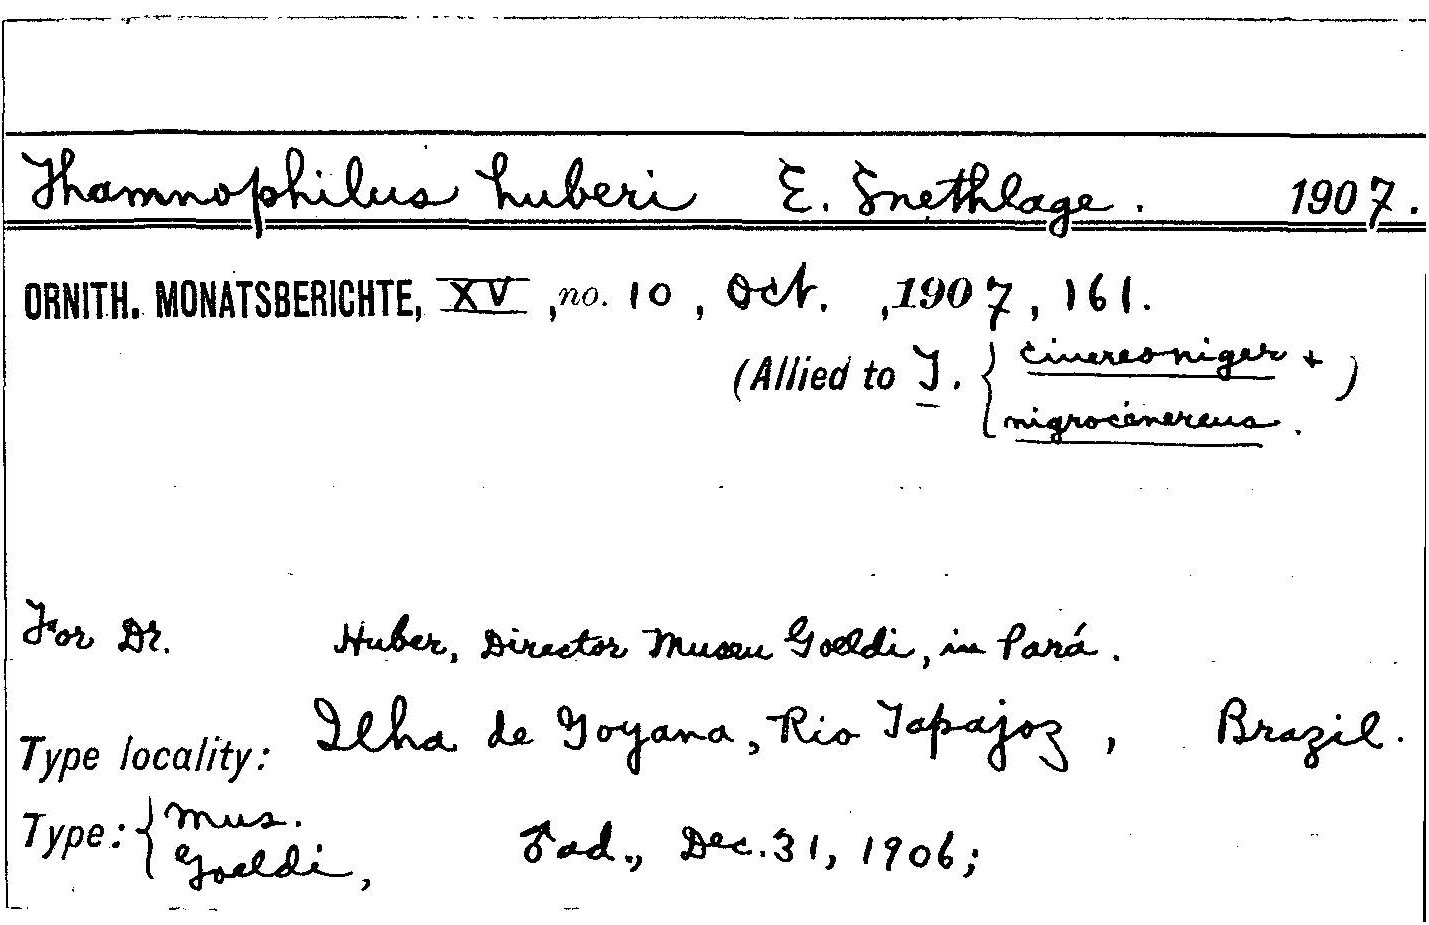 Thamnophilus huberi E. Snethlage. 1907.
ORNITH. MONATSBERICHTE, XV, no. 10, Oct., 1907, 161.
(Allied to T. { cinereoniger + )
nigrocinereus.
For Dr. Huber, Director Museu Goeldi, in Pará.
Type locality: Ilha de Goyana, Rio Tapajoz, Brazil.
Type: { Mus.
Goeldi, ♂ ad., Dec. 31, 1906;